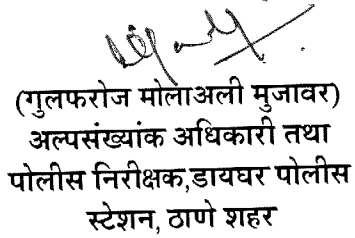 (गुलफरोज मोलाअली मुजावर)
अल्पसंख्यांक अधिकारी तथा
पोलीस निरीक्षक,डायघर पोलीस
स्टेशन, ठाणे शहर